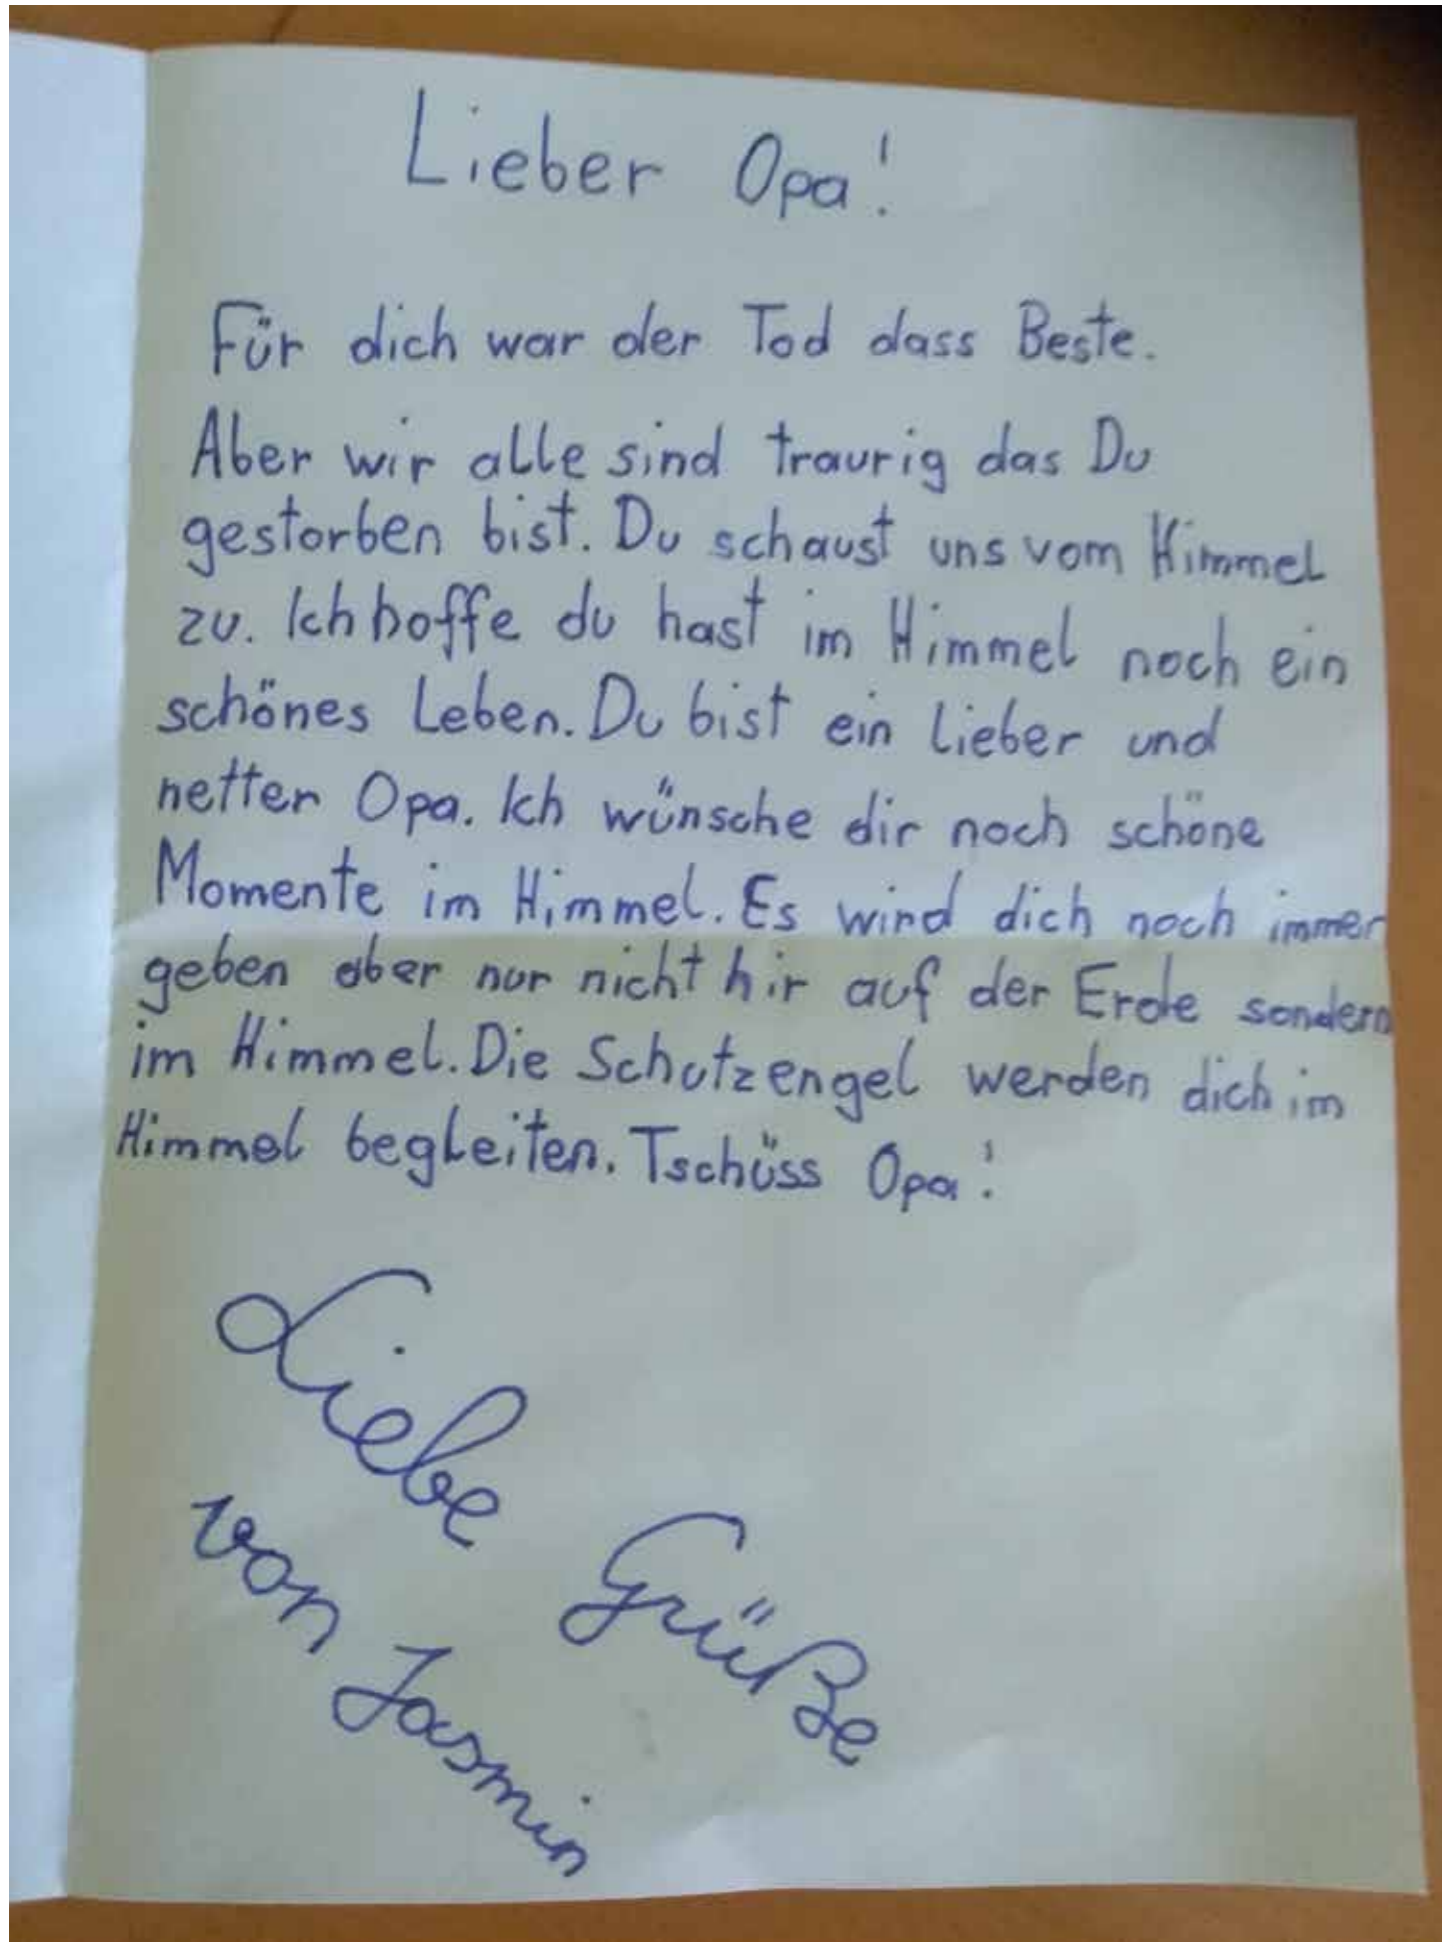 Lieber Opa!
Für dich war der Tod dass Beste.
Aber wir alle sind traurig das Du
gestorben bist. Du schaust uns vom Himmel
zu. Ich hoffe du hast im Himmel noch ein
schönes Leben. Du bist ein lieber und
netter Opa. Ich wünsche dir noch schöne
Momente im Himmel. Es wird dich noch immer
geben aber nur nicht hir auf der Erde sondern
im Himmel. Die Schutzengel werden dich im
Himmel begleiten. Tschüss Opa!
Liebe Grüße
von Jasmin